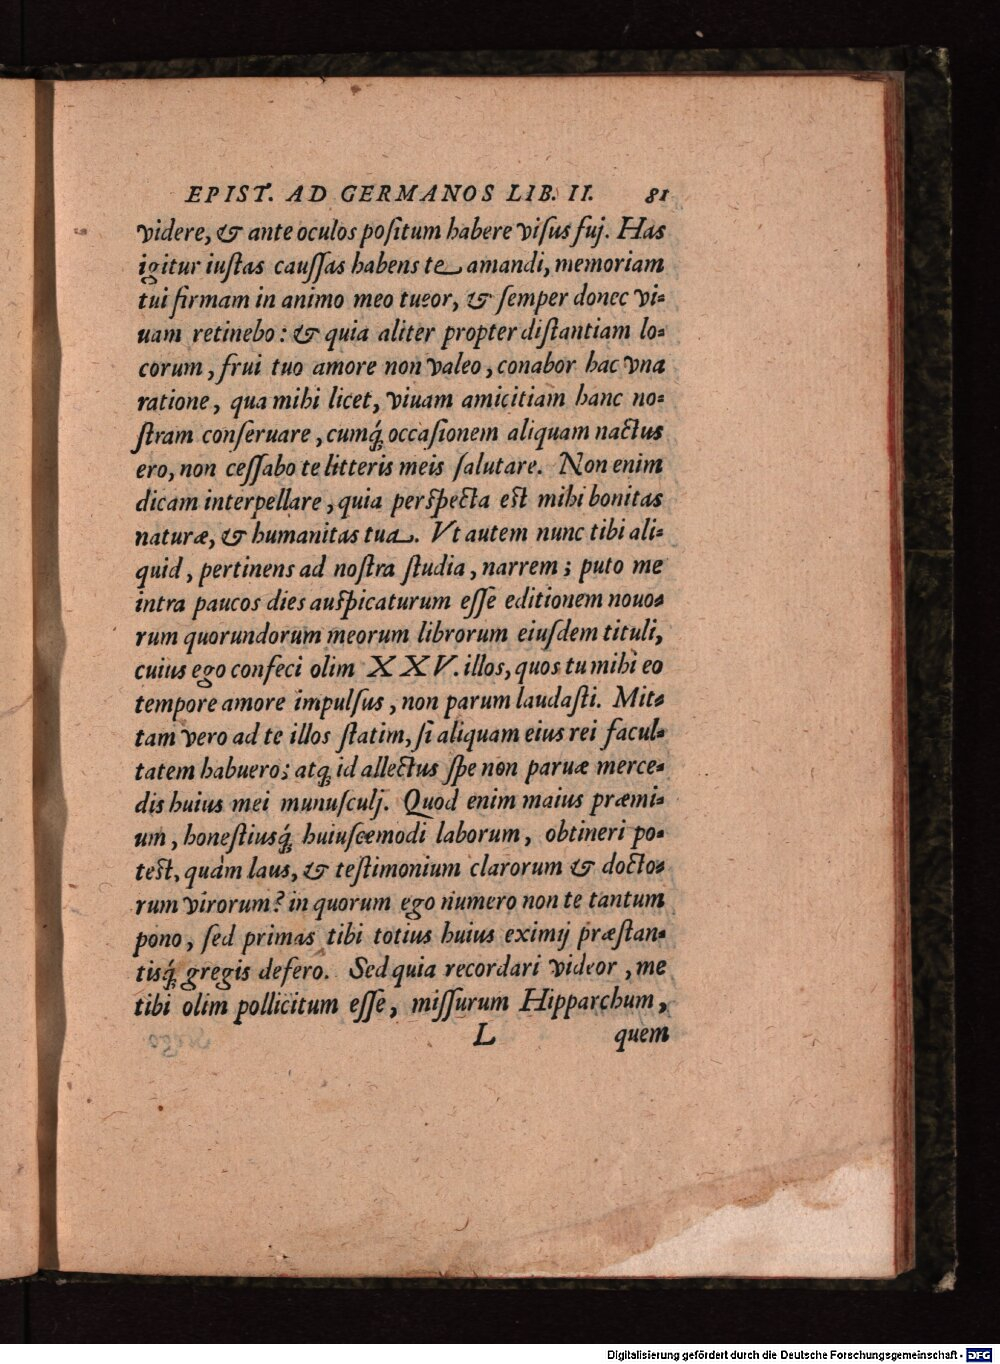 EPIST. AD GERMANOS LIB. II. 81
videre, & ante oculos poſitum habere viſus fuj. Has
igitur iuſtas cauſſas habens te amandi, memoriam
tui firmam in animo meo tueor, & ſemper donec vi=
uam retinebo: & quia aliter propter diſtantiam lo=
corum, frui tuo amore non valeo, conabor hac vna
ratione, qua mihi licet, viuam amicitiam hanc no=
ſtram conſeruare, cumq́; occaſionem aliquam nactus
ero, non ceſſabo te litteris meis ſalutare. Non enim
dicam interpellare, quia perſpecta eſt mihi bonitas
naturæ, & humanitas tua. Vt autem nunc tibi ali=
quid, pertinens ad noſtra ſtudia, narrem; puto me
intra paucos dies auſpicaturum eſſe editionem nouo=
rum quorundorum meorum librorum eiuſdem tituli,
cuius ego confeci olim XXV. illos, quos tu mihi eo
tempore amore impulſus, non parum laudaſti. Mit=
tam vero ad te illos ſtatim, ſi aliquam eius rei facul=
tatem habuero; atq; id allectus ſpe non paruæ merce=
dis huius mei munuſculj. Quod enim maius præmi=
um, honeſtiusq́; huiuſcemodi laborum, obtineri po=
teſt, quàm laus, & teſtimonium clarorum & docto=
rum virorum? in quorum ego numero non te tantum
pono, ſed primas tibi totius huius eximij præſtan=
tisq́; gregis defero. Sed quia recordari videor, me
tibi olim pollicitum eſſe, miſſurum Hipparchum,
L quem
Digitalisierung gefördert durch die Deutsche Forschungsgemeinschaft - DFG